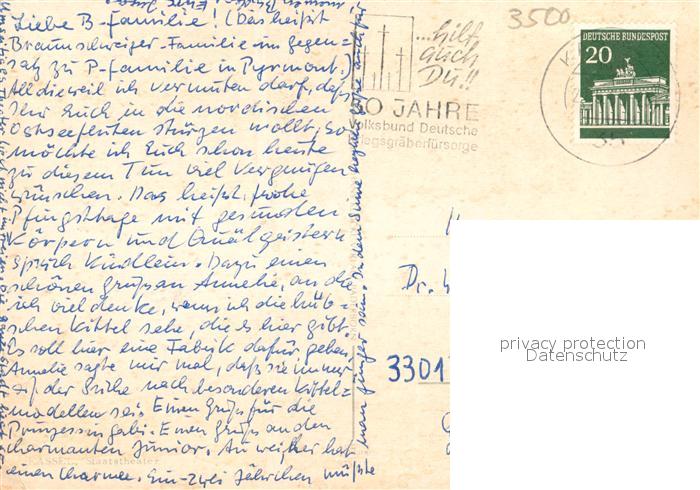 Liebe B-Familie! (Das heißt
Braunschweiger-Familie im Gegen=
satz zu P-Familie in Pyrmont.)
All dieweil ich vermuten darf, daß
Ihr Euch in die nordischen
Ostseefluten stürzen wollt, so
möchte ich Euch schon heute
zu diesem Tun viel Vergnügen
wünschen. Das heißt, frohe
Pfingsttage mit gesunden
Körpern und Quälgeistern
sprich Kindlein. Dazu einen
schönen Gruß an Annelie, an die
ich viel denke, wenn ich die hüb=
schen Kittel sehe, die es hier gibt.
Es soll hier eine Fabrik dafür geben,
Annelie sagte mir mal, daß sie immer
auf der Suche nach besonderen Kittel=
modellen sei. Einen Gruß für die
Prinzessin Gabi. Einen Gruß an den
charmanten Junior. An
einen Charmee. Ein-zwei Jährchen müßte
man jünger sein. In dem Sinne
KASSEL, Staatstheater
...hilf
auch
Du!!
50 JAHRE
Volksbund Deutsche
Kriegsgräberfürsorge
3500
DEUTSCHE BUNDESPOST
20
35
Dr.
3301
privacy protection
Datenschutz